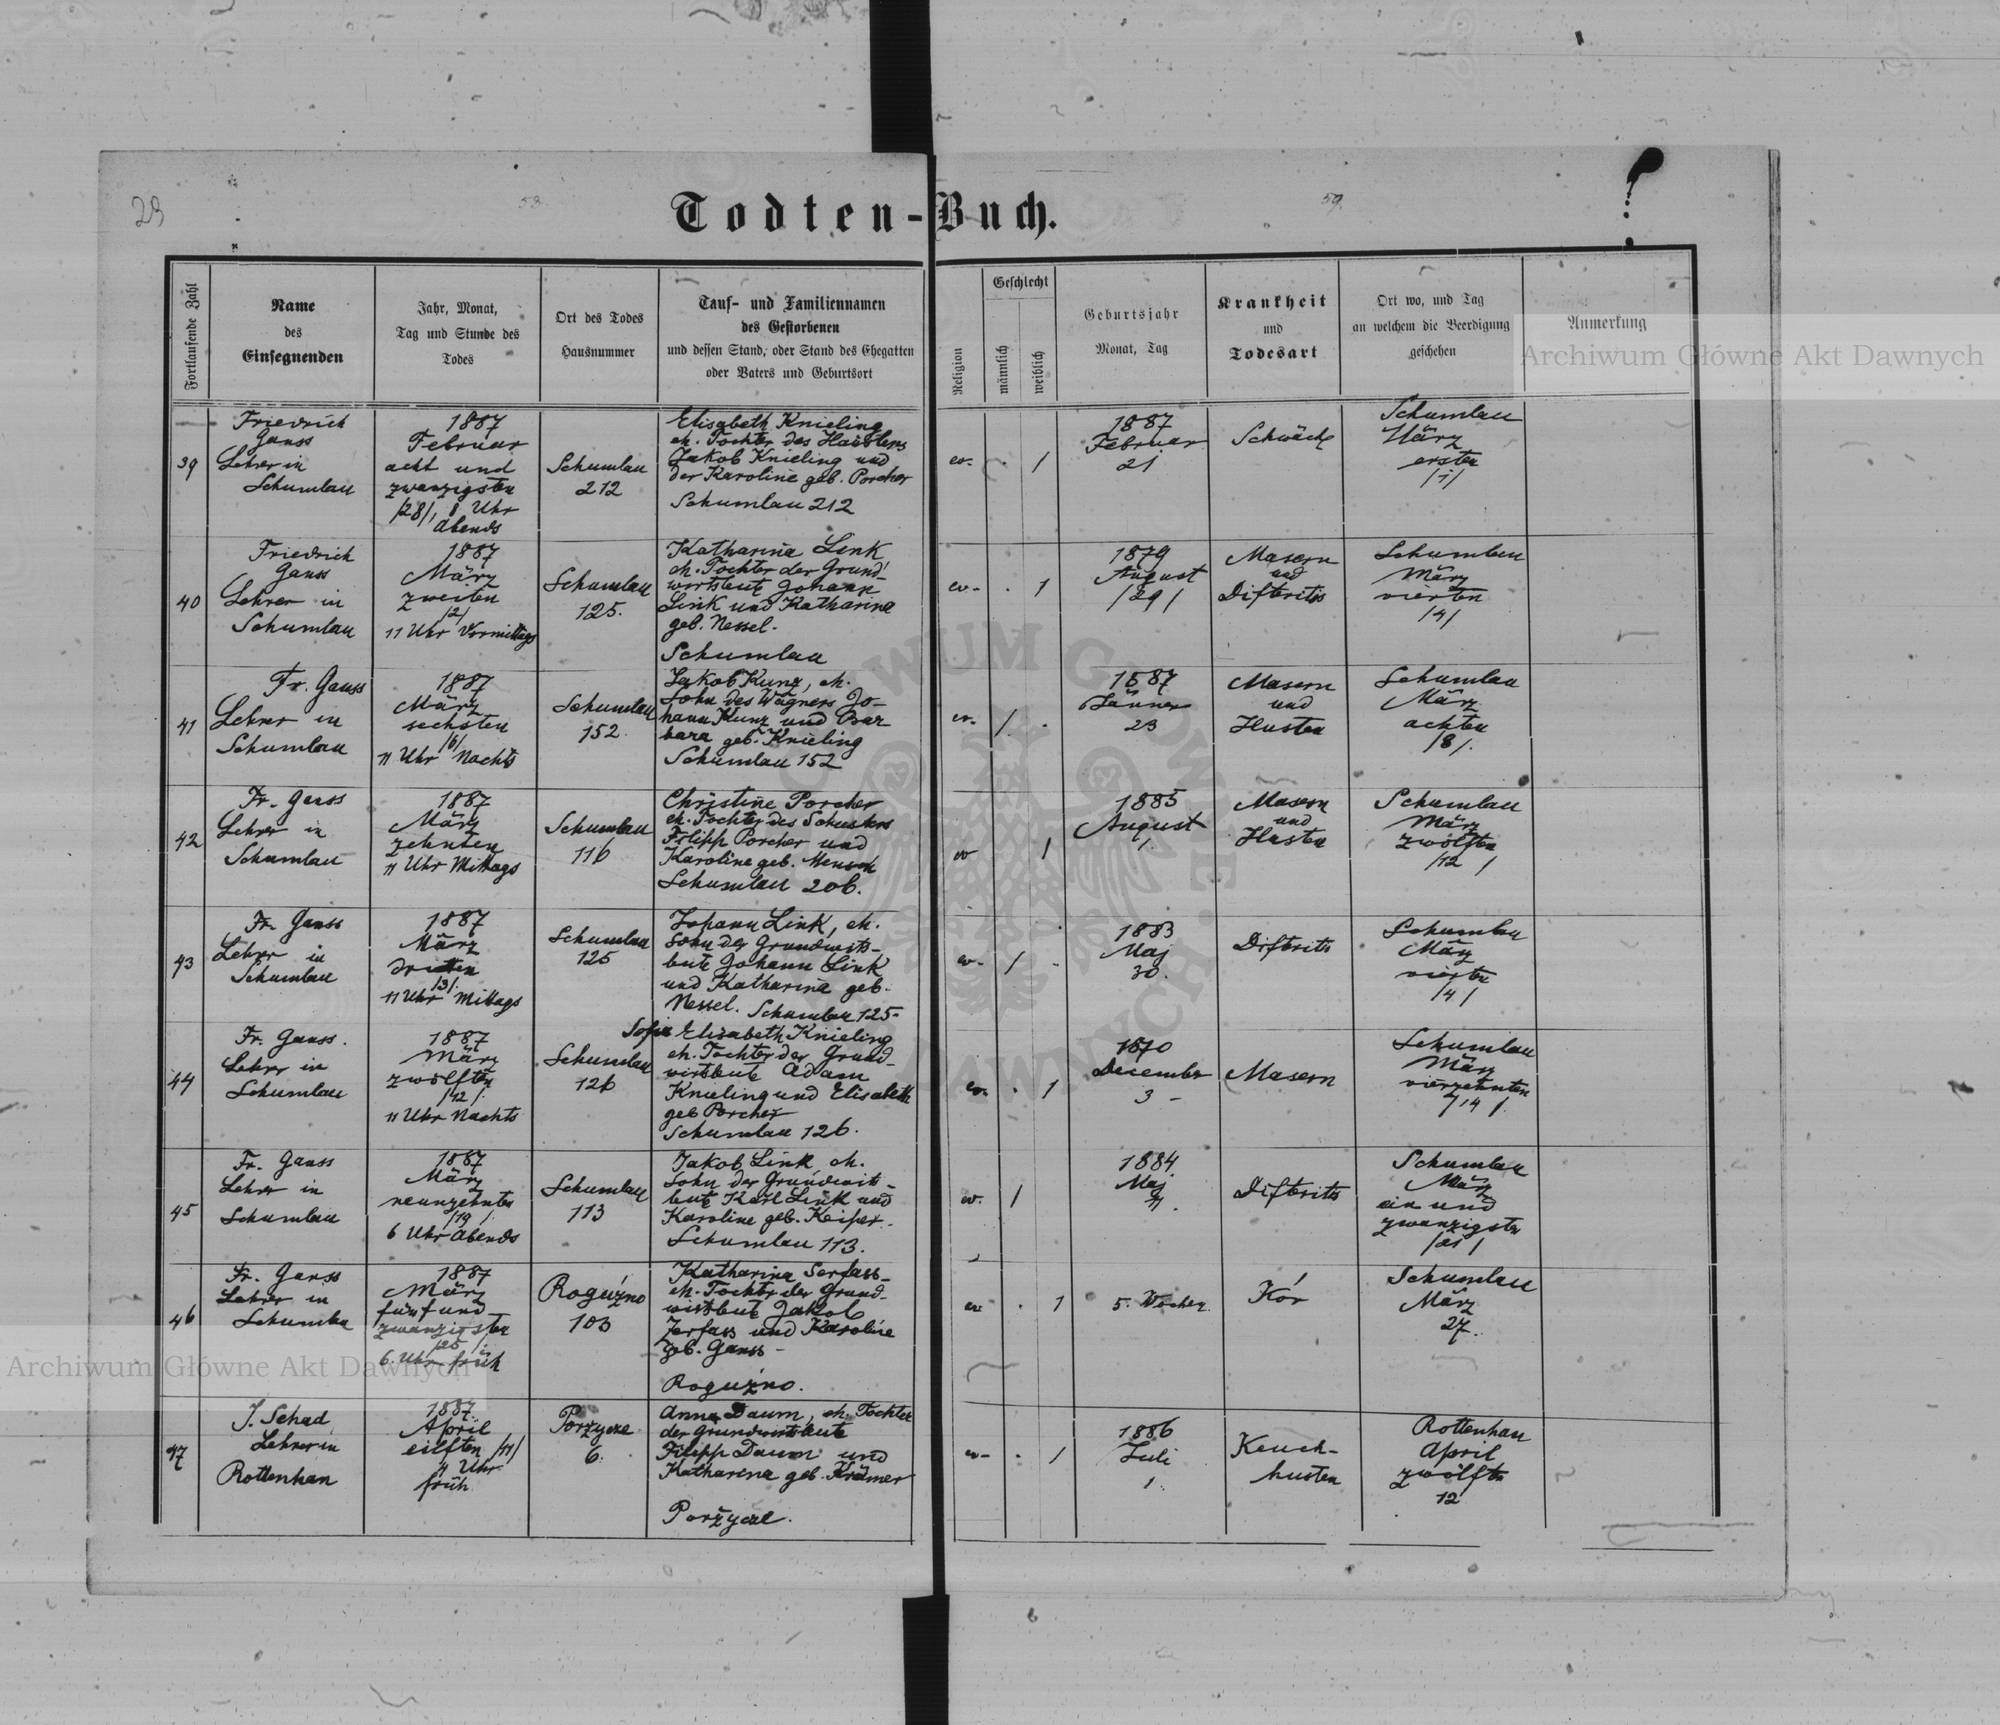 29
58.
59.
Todten-Buch.
Fortlaufende Zahl
Name
des
Einsegnenden
Jahr, Monat,
Tag und Stunde des
Todes
Ort des Todes
Hausnummer
Tauf- und Familiennamen
des Gestorbenen
und dessen Stand, oder Stand des Ehegatten
oder Vaters und Geburtsort
Religion
Geschlecht
männlich
weiblich
Geburtsjahr
Monat, Tag
Krankheit
und
Todesart
Ort wo, und Tag
an welchem die Beerdigung
geschehen
Anmerkung
Archiwum Główne Akt Dawnych
39
Friedrich
Gauss
Lehrer in
Schumlau
1887
Februar
acht und
zwanzigsten
/28/, 8 Uhr
Abends
Schumlau
212
Elisabeth Knieling
eh. Tochter des Häuslers
Jakob Knieling und
der Karoline geb. Porcher
Schumlau 212
ev. . 1
1887
Februar
21
Schwäche
Schumlau
März
ersten
/1/
40
Friedrich
Gauss
Lehrer in
Schumlau
1887
März
zweiten
/2/
11 Uhr Vormittags
Schumlau
125.
Katharina Link
eh. Tochter der Grund-
wirtsleute Johann
Link und Katharina
geb. Nessel.
Schumlau
ev. . 1
1879
August
/29/
Masern
und
Difteritis
Schumlau
März
vierten
/4/
41
Fr. Gauss
Lehrer in
Schumlau
1887
März
sechsten
/6/
11 Uhr Nachts
Schumlau
152
Jakob Kunz, eh.
Sohn des Wagners Jo-
hann Kunz und Bar
bara geb. Knieling
Schumlau 152
ev. 1 .
1887
Jänner
23
Masern
und
Husten
Schumlau
März
achten
/8/.
42
Fr. Gauss
Lehrer in
Schumlau
1887
März
zehnten
11 Uhr Mittags
Schumlau
116
Christine Porcher
eh. Tochter des Schusters
Filipp Porcher und
Karoline geb. Mensch
Schumlau 206.
ev 1
1885
August
1
Masern
und
Husten
Schumlau
März
zwölften
/12/
43
Fr. Gauss
Lehrer in
Schumlau
1887
März
dritten
/3/.
11 Uhr Mittags
Schumlau
125
Johann Link, eh.
Sohn der Grundwirts-
leute Johann Link
und Katharina geb.
Nessel. Schumlau 125-
ev. 1 .
1883
Maj
30.
Difteritis
Schumlau
März
vierten
/4/
44
Fr. Gauss.
Lehrer in
Schumlau
1887
März
zwölften
/12/.
11 Uhr Nachts
Schumlau
126
Sofie Elisabeth Knieling
eh. Tochter der Grund-
wirtsleute Adam
Knieling und Elisabeth
geb Porcher
Schumlau 126.
ev. . 1
1870
December
3 -
Masern
Schumlau
März
vierzehnten
/14/.
45
Fr. Gauss
Lehrer in
Schumlau
1887
März
neunzehnten
/19/.
6 Uhr Abends
Schumlau
113
Jakob Link, eh.
Sohn der Grundwirt-
leute Karl Link und
Karoline geb. Keiper.
Schumlau 113.
ev. 1
1884
Maj
Difteritis
Schumlau
März
ein und
zwanzigsten
/21/
46
Fr. Gauss
Lehrer in
Schumlau
1887
März
fünf und
zwanzigsten
/25/.
6. Uhr früh
Roguźno
103
Katharina Serfass-
eh. Tochter der Grund-
wirtsleute Jakob
Zerfass und Karoline
geb. Gauss -
Roguźno.
ev . 1
5. Wochen
Kór
Schumlau
März
27.
47
J. Schad
Lehrer in
Rottenhan
1887
April
eilften /11/
4 Uhr
früh
Porzycze
6.
Anna Daum, eh. Tochter
der Grundwirtsleute
Filipp Daum und
Katharina geb. Krämer
Porzycze.
ev- . 1
1886
Juli
1.
Keuch-
husten
Rottenhan
April
zwölften
12
Archiwum Główne Akt Dawnych